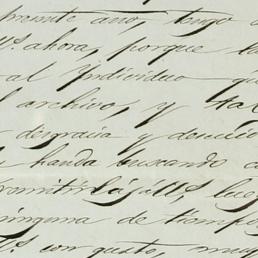 presente año, tengo
Vs. ahora, porque
al Individuo que
archivo, y
desgracia y
handa buscando
remitirla á Vs, lue
ninguna de tiempo
Vs. con gusto, muy